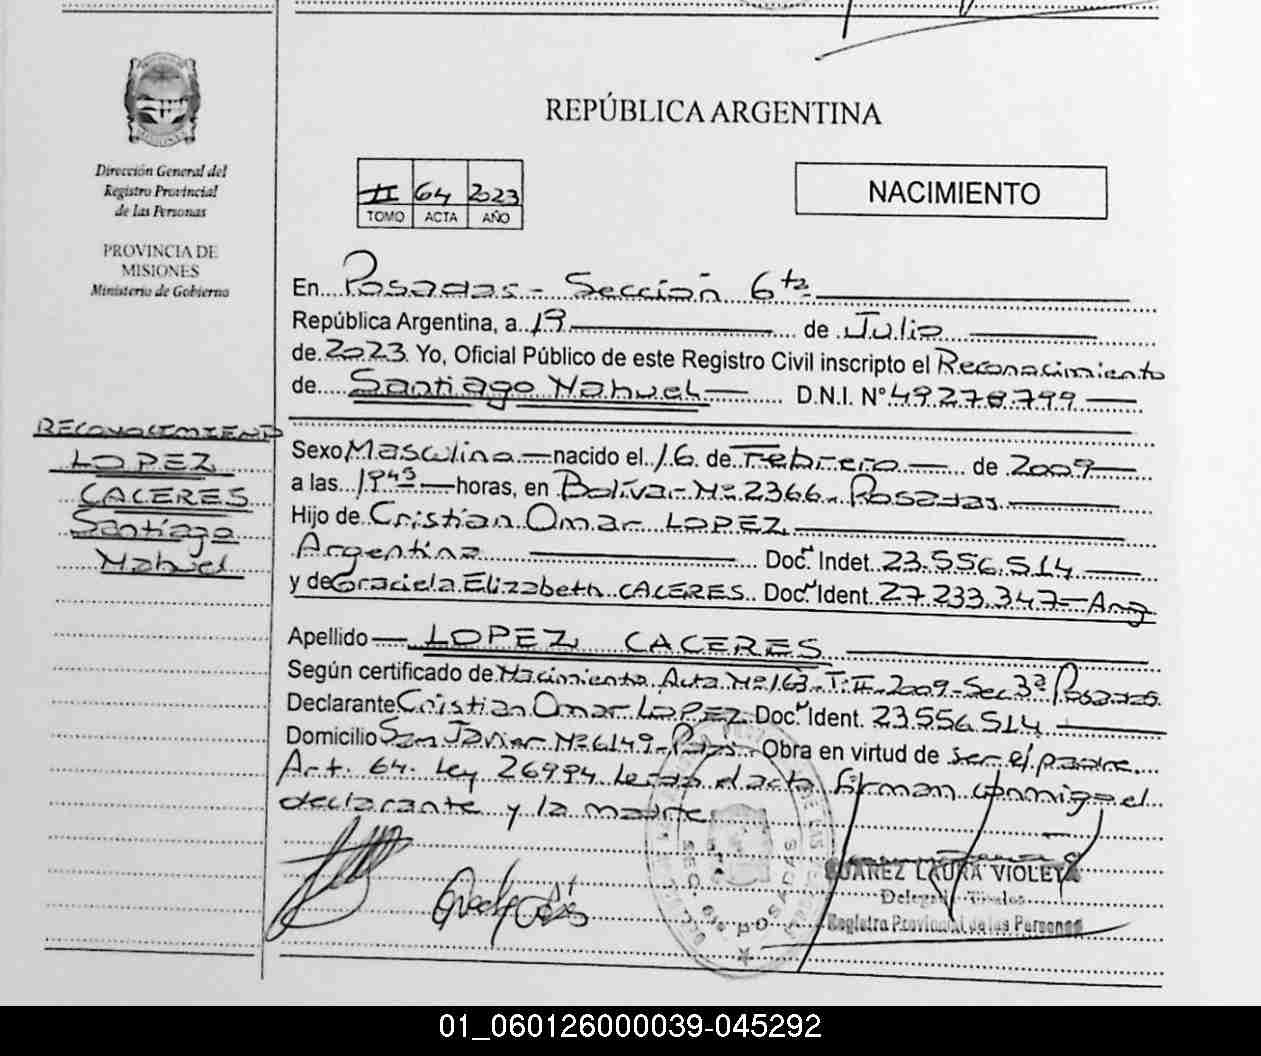 REPÚBLICA ARGENTINA
Dirección General del
Registro Provincial
de las Personas
PROVINCIA DE
MISIONES
Ministerio de Gobierno
II 64 2023
TOMO ACTA AÑO
NACIMIENTO
En Posadas - Sección 6ta
República Argentina, a 19 de Julio
de 2023 Yo, Oficial Público de este Registro Civil inscripto el Reconocimiento
de Santiago Nahuel D.N.I. N° 49.278.799
RECONOCIMIENTO
LOPEZ
CACERES
Santiago
Nahuel
Sexo Masculino nacido el 16 de Febrero de 2009
a las 19 45 horas, en Bolívar N° 2366 - Posadas
Hijo de Cristian Omar LOPEZ
Argentino Doc. Indet. 23.556.514
y de Graciela Elizabeth CACERES Doc. Ident. 27.233.347 - Arg
Apellido LOPEZ CACERES
Según certificado de Nacimiento Acta N° 163 - T: II - 2009 - Sec 3ª Posadas
Declarante Cristian Omar LOPEZ Doc. Ident. 23.556.514
Domicilio San Javier N° 6149 - Obra en virtud de ser el padre.
Art. 64. Ley 26994 Leída el acta firman conmigo el
declarante y la madre
SUAREZ LAURA VIOLETA
Registro Provincial de las Personas
01_060126000039-045292